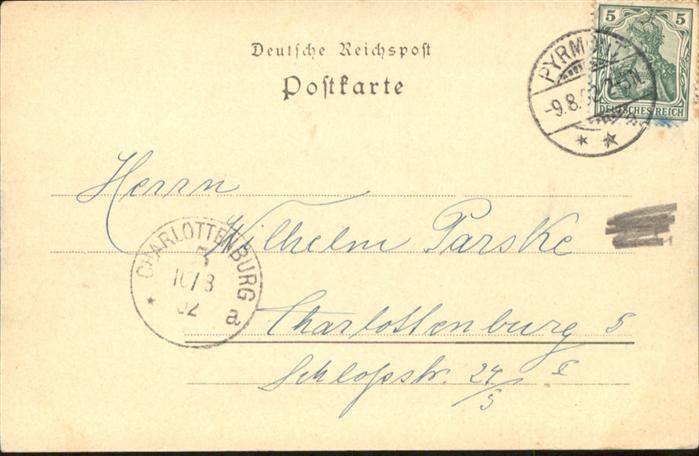 Deutsche Reichspost
Postkarte
5 5
DEUTSCHES REICH
PYRMONT
-9.8.02.
Herrn
Wilhelm Parske
CHARLOTTENBURG
5
10/8
02
a
Charlottenburg 5
Schloßstr. 24 I
5